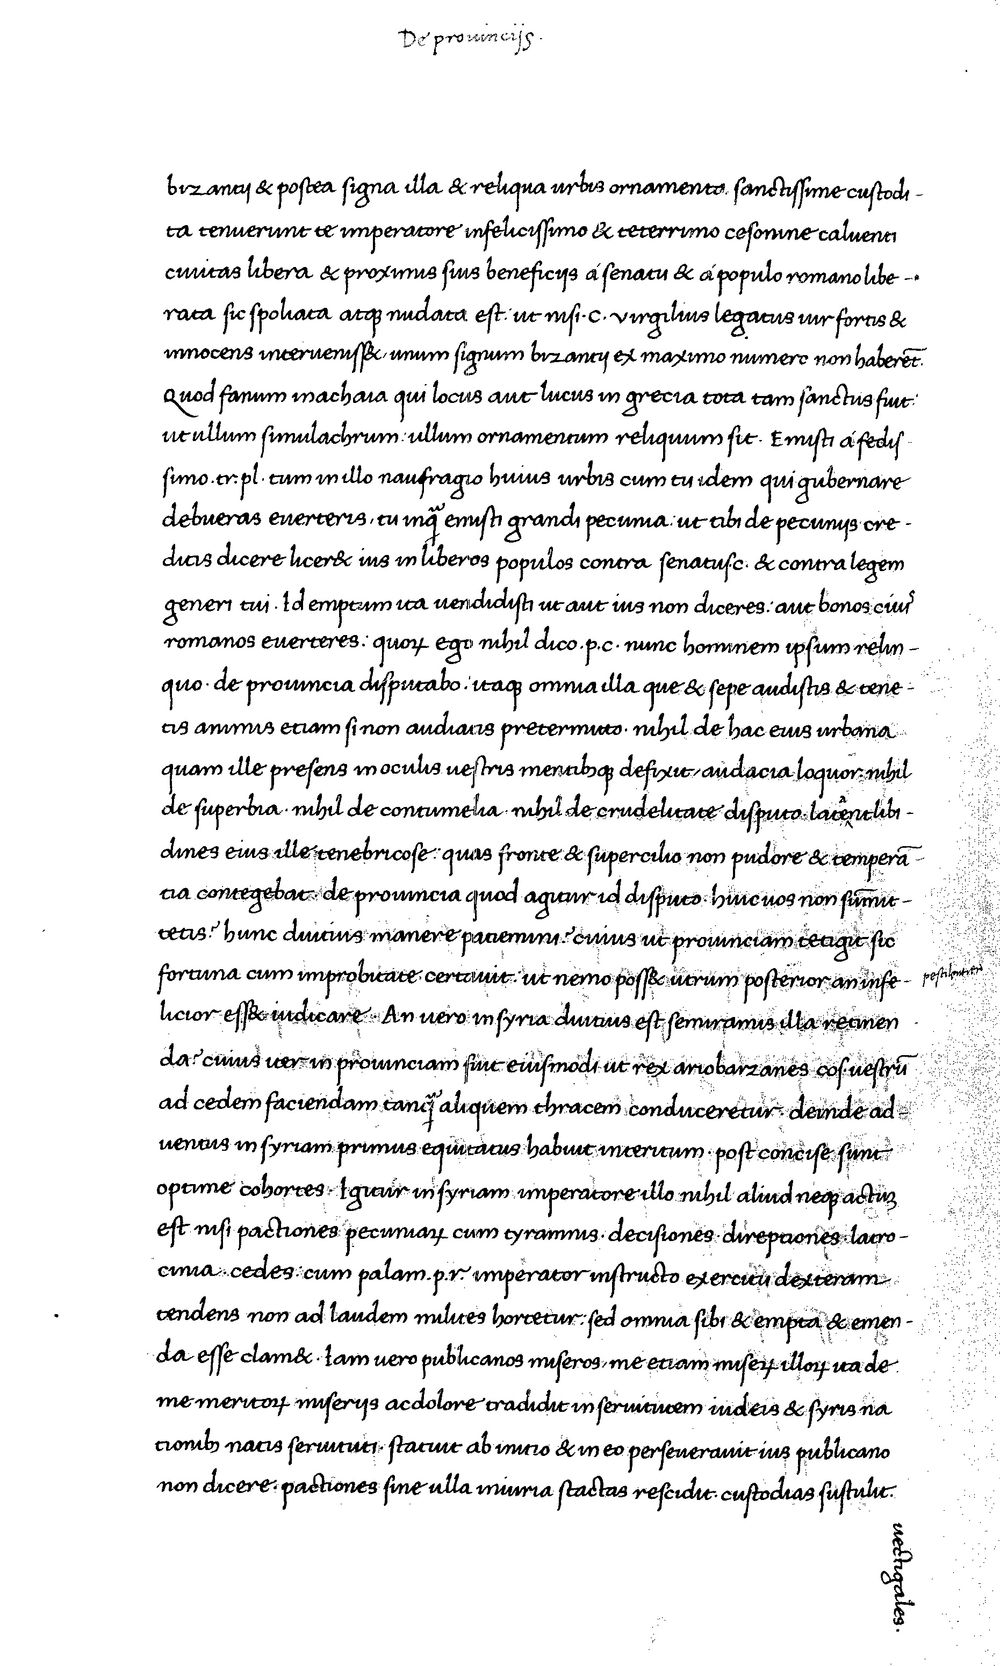 De prouincijs.
bizantij & postea signa illa & reliqua urbis ornamento. sanctissime custodi-
ta tenuerunt te imperatore infelicissimo & teterrimo cesonine caluenti
ciuitas libera & proximis suis beneficijs á senatu & á populo romano libe-
rata sic spoliata atqꝫ nudata est: ut nisi .C. virgilius legatus uir fortis &
innocens interueniss&, unum signum bizantij ex maximo numero non haberet̄.
Quod fanum inachaia qui locus aut lucus in grecia tota tam sanctus fuit:
ut ullum simulachrum: ullum ornamentum reliquum sit. Emisti á fedis
simo .tr. pl. tum in illo naufragio huius urbis cum tu idem qui gubernare
debueras euerteris, tu inqᷓ emisti grandi pecunia: ut tibi de pecunijs cre-
ditis dicere licer& ius in liberos populos contra senatus.c. & contra legem
generi tui. Id emptum ita uendidisti ut aut ius non diceres: aut bonos ciuis
romanos euerteres: quoꝝ ego nihil dico .p.c. nunc hominem ipsum relin-
quo. de prouincia disputabo. itaqꝫ omnia illa que & sepe audistis & tene-
tis animis etiam si non audiatis pretermitto. nihil de hac eius urbana
quam ille presens in oculis uestris mentibqꝫ defixit, audacia loquor: nihil
de superbia. nihil de contumelia. nihil de crudelitate disputo. lateant libi-
dines eius ille tenebricose: quas fronte & supercilio non pudore & temperā-
tia contegebat: de prouincia quod agitur id disputo. huic uos non sum̄it-
tetis? hunc diutius manere patiemini? cuius ut prouinciam tetigit sic
fortuna cum improbitate certauit: ut nemo poss& utrum posterior an infe- pestilentior
licior ess& iudicare. An uero in syria diutius est semiramis illa retinen
da? cuius iter in prouinciam fuit eiusmodi ut rex ariobarzanes cos. uestrū
ad cedem faciendam tanqᷓ aliquem thracem conduceretur. deinde ad-
uentus in syriam primus equitatus habuit interitum. post concise sunt
optime cohortes. Igitur in syriam imperatore illo nihil aliud neqꝫ actuꝫ
est nisi pactiones pecuniaꝝ cum tyrannis. decisiones. direptiones. latro-
cinia. cedes: cum palam .p.r. imperator instructo exercitu dexteram
tendens non ad laudem milites hortetur: sed omnia sibi & empta & emen-
da esse clam&. Iam uero publicanos miseros, me etiam miseꝝ illoꝝ ita de
me meritoꝝ miserijs ac dolore tradidit in seruitutem iudeis & syris na
tionibꝫ natis seruituti. statuit ab initio & in eo perseuerauit ius publicano
non dicere. pactiones sine ulla iniuria stactas rescidit. custodias sustulit.
uectigales.